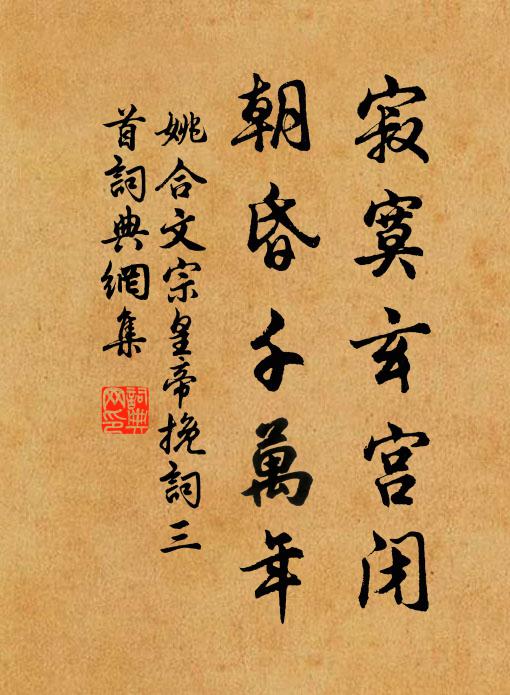 寂寞玄宫闭
朝昏千萬年
姚合文宗皇帝挽詞三
首詞典網集
詞典
网印